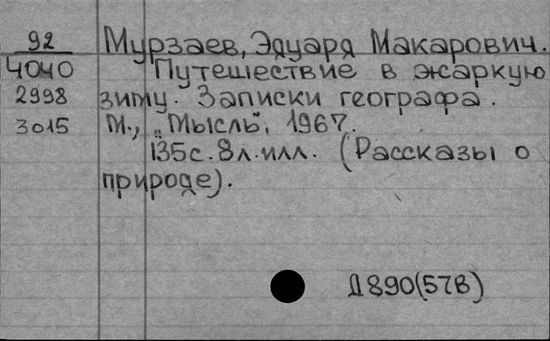 92 Мурзаев, Эдуард Макарович.
4040 Путешествие в жаркую
2998 зиму. Записки географа.
3015 М., „Мысль", 1967.
135с. 8л. илл. (Рассказы о
природе).
Д890(57В)